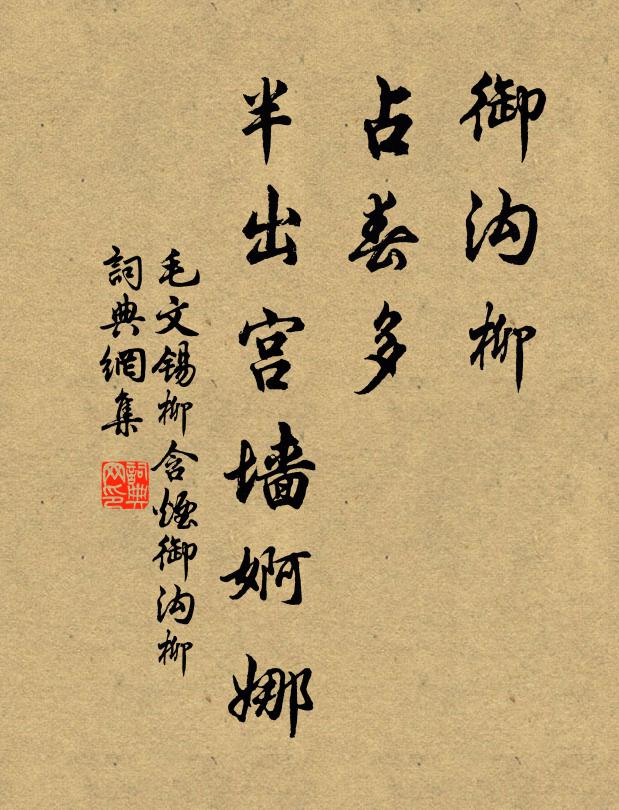 御沟柳
占春多
半出宫墙婀娜
毛文锡柳含烟御沟柳
詞典網集
詞典网印